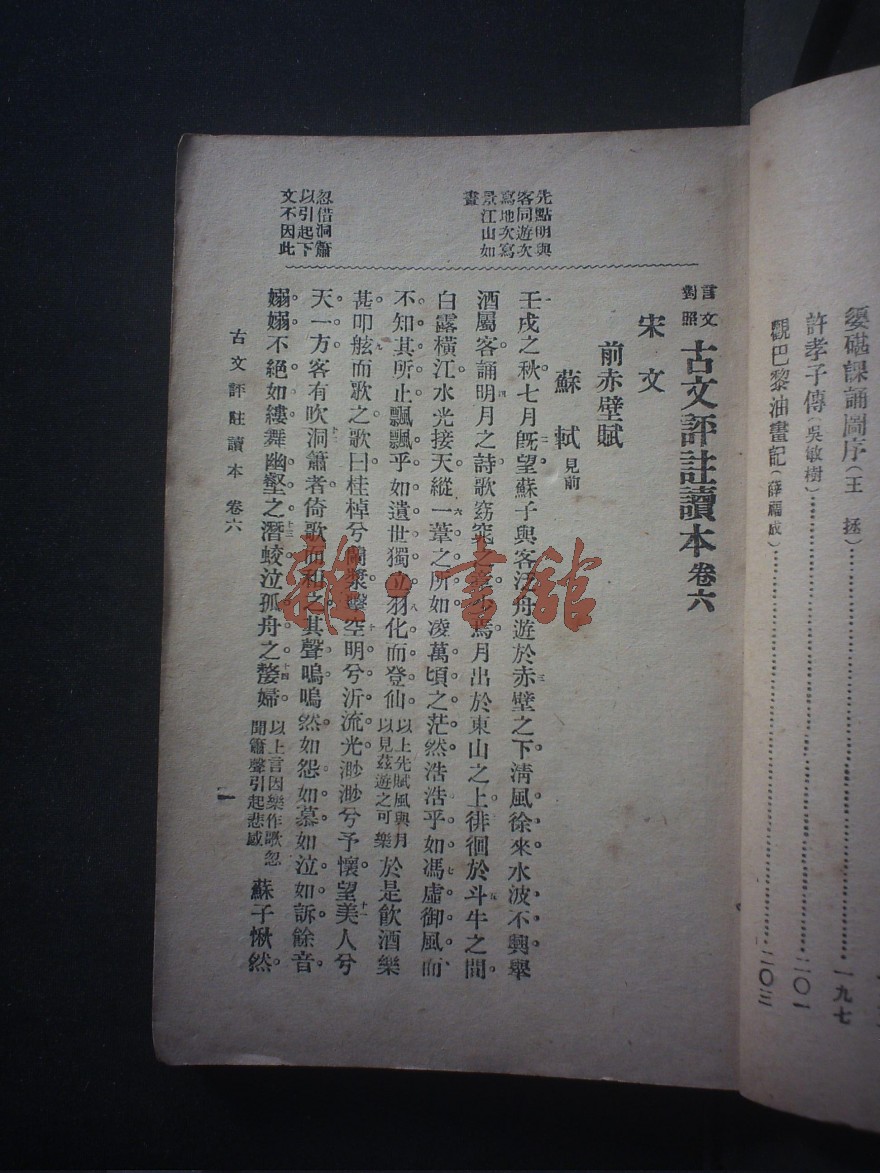 媭碪課誦圖序(王拯)⋯⋯一九七
許孝子傳(吳敏樹)⋯⋯二〇一
觀巴黎油畫記(薛福成)⋯⋯二〇三
言文對照 古文評註讀本 卷六
宋文
前赤壁賦
蘇軾 見前
先點明與
客同遊次
寫地次寫
景江山如
畫
壬戌之秋七月旣望蘇子與客泛舟遊於赤壁之下清風徐來水波不興舉
酒屬客誦明月之詩歌窈窕之章少焉月出於東山之上徘徊於斗牛之間
白露橫江水光接天縱一葦之所如凌萬頃之茫然浩浩乎如馮虛御風而
不知其所止飄飄乎如遺世獨立羽化而登仙 以上先賦風與月以見茲遊之可樂 於是飲酒樂
甚叩舷而歌之歌曰桂棹兮蘭槳擊空明兮泝流光渺渺兮予懷望美人兮
忽借洞簫
以引起下
文不因此
天一方客有吹洞簫者倚歌而和之其聲嗚嗚然如怨如慕如泣如訴餘音
嫋嫋不絕如縷舞幽壑之潛蛟泣孤舟之嫠婦 以上言因樂作歌忽聞簫聲引起悲感 蘇子愀然
古文評註讀本 卷六
一
雜·書館